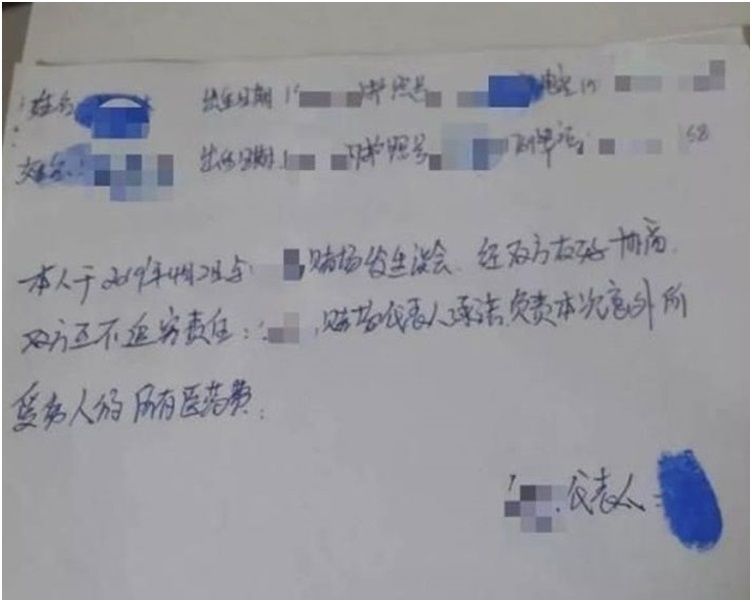 姓名 出生日期 护照号 电话
姓名 出生日期 护照号 158
本人于2019年4月2日与 赌场发生误会、经双方友好协商
双方互不追究责任: 赌场代表人承诺负责本次意外所
受伤人的所有医药费.
代表人